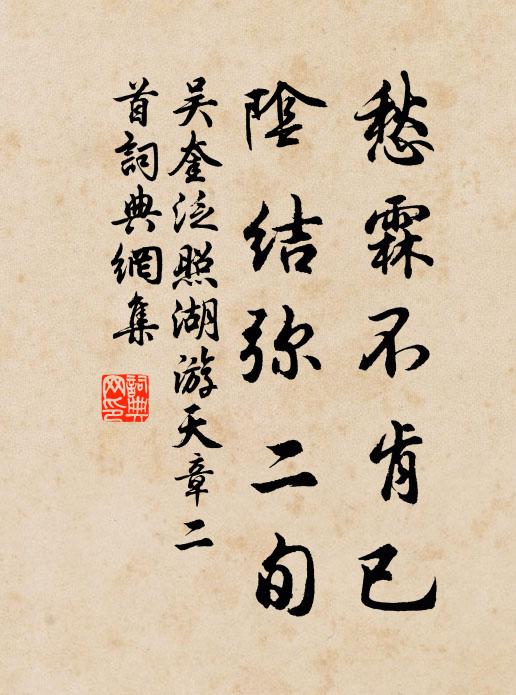 愁霖不肯已
陰结弥二旬
吴奎泛照湖游天章二
首詞典網集
詞典
网印